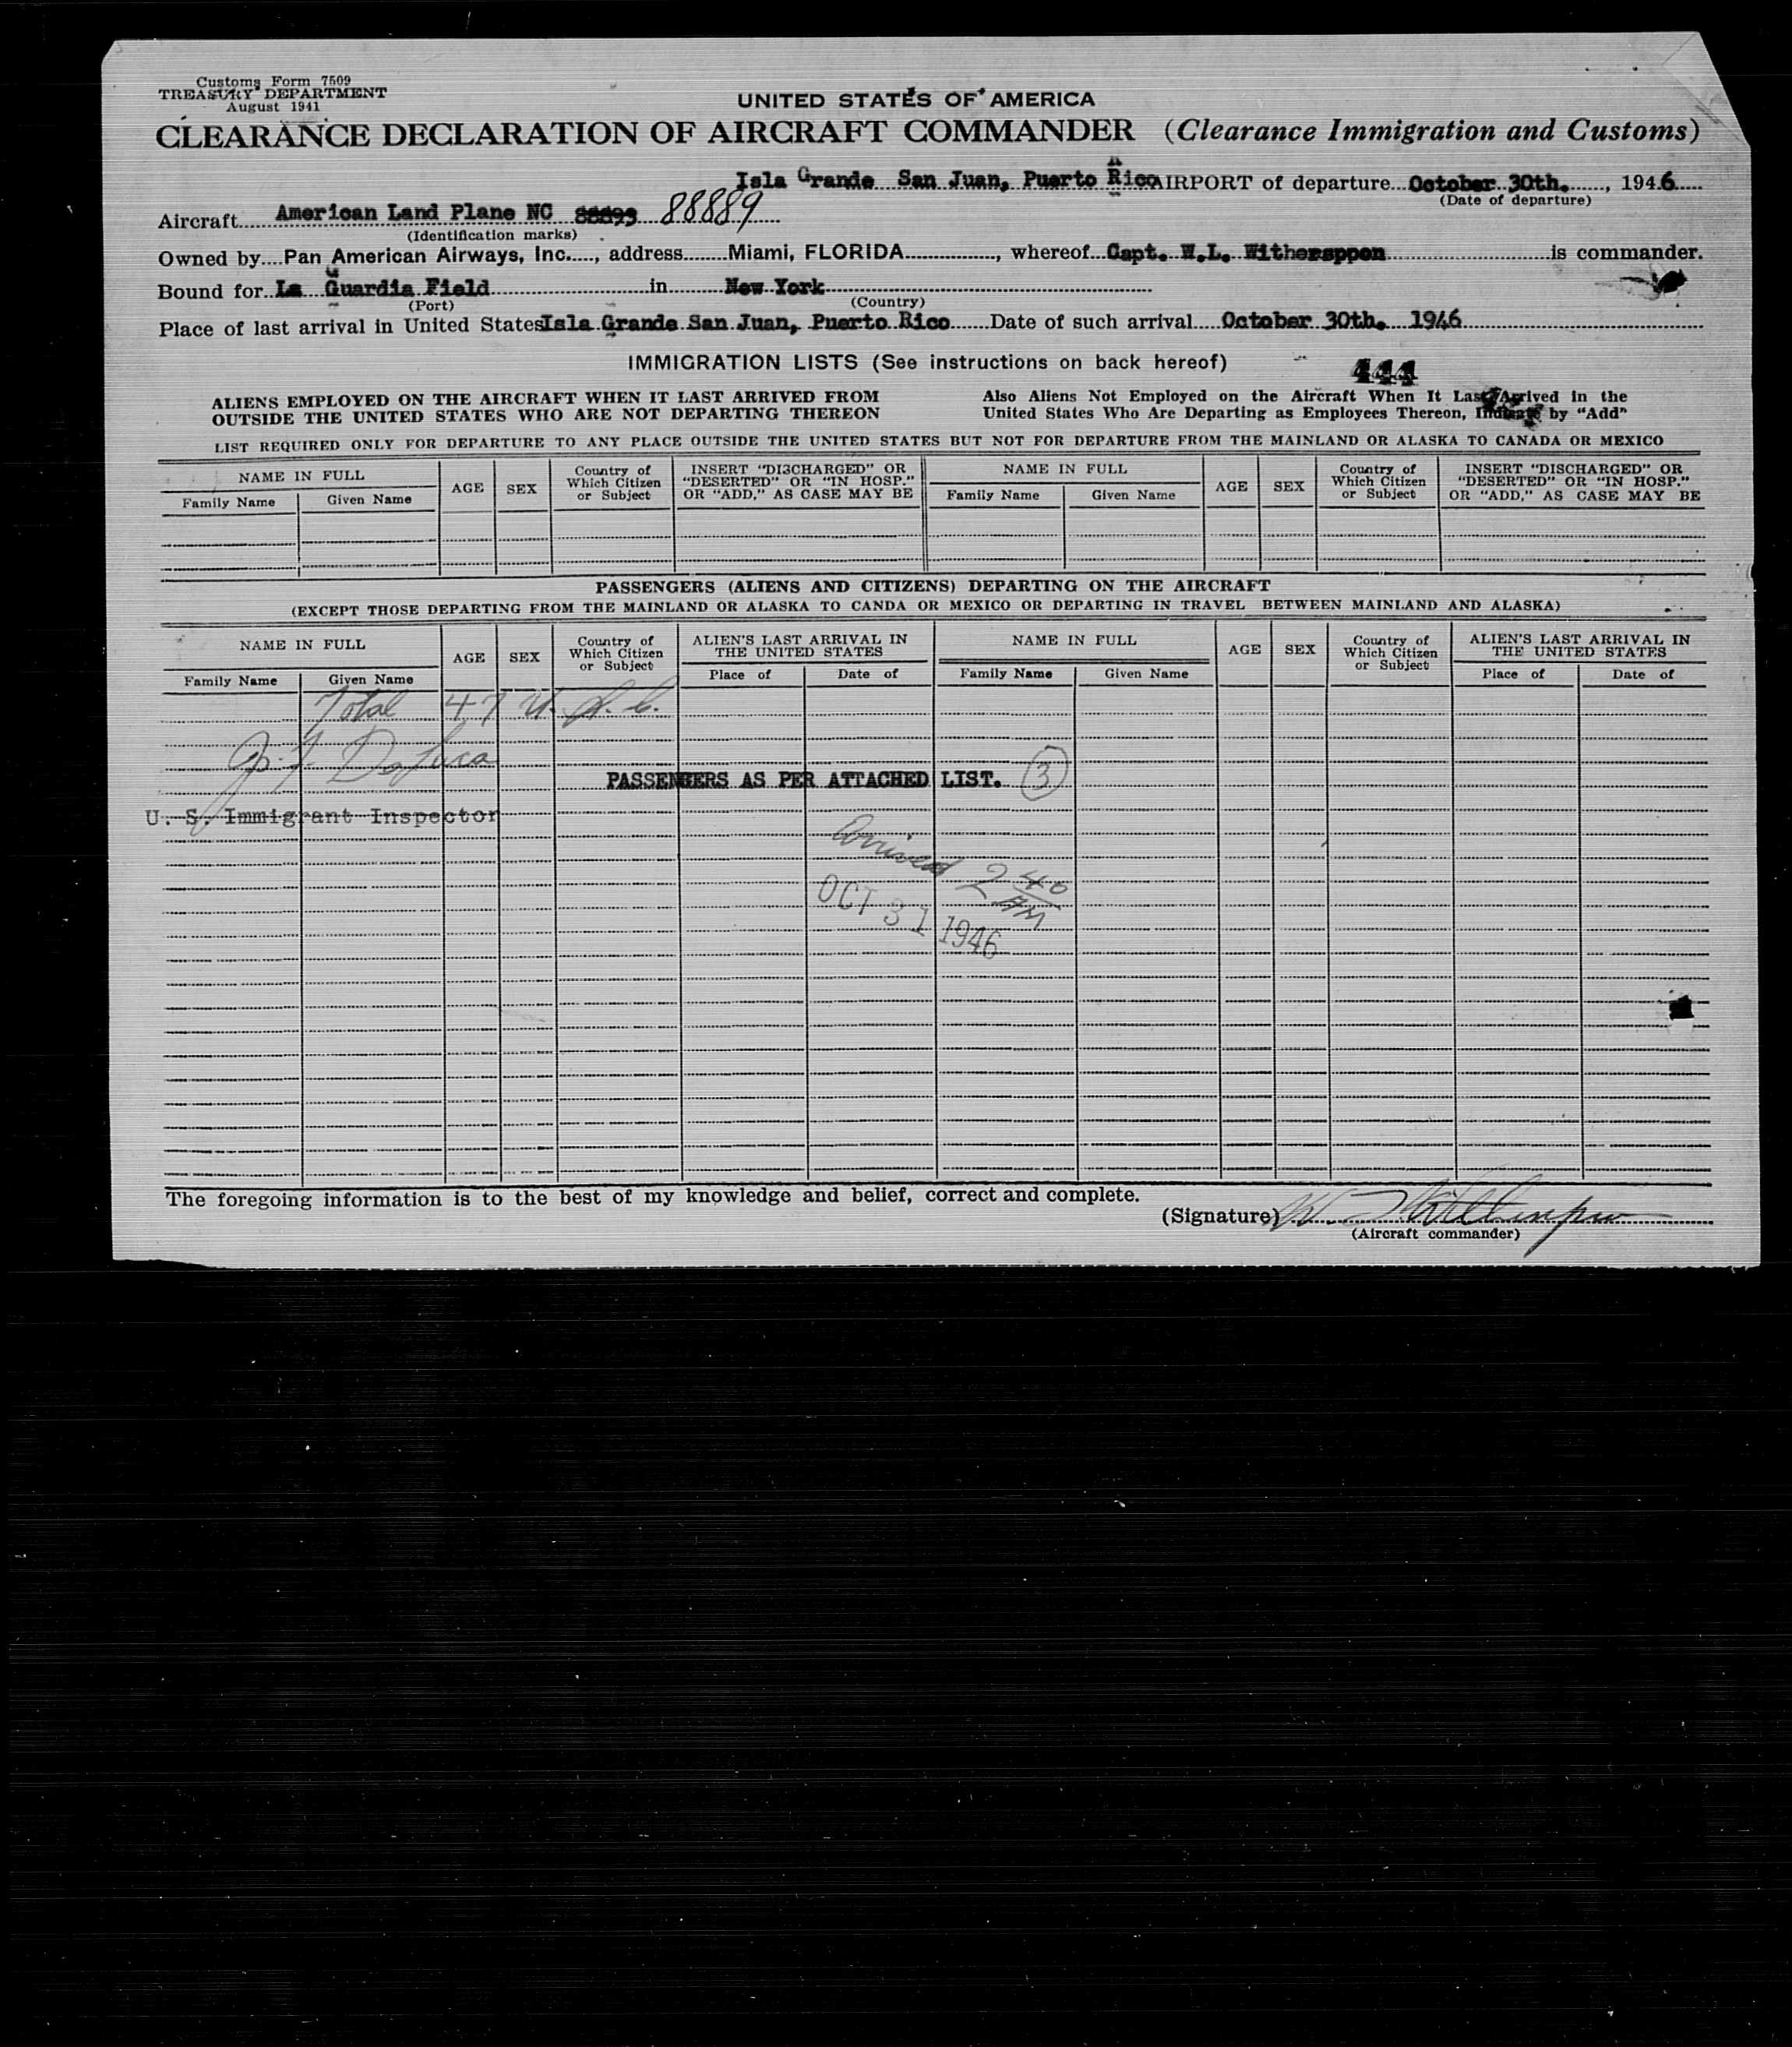 Customs Form 7509
TREASURY DEPARTMENT
August 1941
UNITED STATES OF AMERICA
CLEARANCE DECLARATION OF AIRCRAFT COMMANDER (Clearance Immigration and Customs)
Isla Grande San Juan, Puerto Rico AIRPORT of departure October 30th. , 1946
(Date of departure)
Aircraft American Land Plane NC 88889
(Identification marks)
Owned by Pan American Airways, Inc. , address Miami, FLORIDA , whereof Capt. W.L. Withersppon is commander.
Bound for La Guardia Field in New York
(Port) (Country)
Place of last arrival in United States Isla Grande San Juan, Puerto Rico Date of such arrival October 30th. 1946
IMMIGRATION LISTS (See instructions on back hereof)
444
ALIENS EMPLOYED ON THE AIRCRAFT WHEN IT LAST ARRIVED FROM
OUTSIDE THE UNITED STATES WHO ARE NOT DEPARTING THEREON
Also Aliens Not Employed on the Aircraft When It Last Arrived in the
United States Who Are Departing as Employees Thereon, Indicate by “Add”
LIST REQUIRED ONLY FOR DEPARTURE TO ANY PLACE OUTSIDE THE UNITED STATES BUT NOT FOR DEPARTURE FROM THE MAINLAND OR ALASKA TO CANADA OR MEXICO
NAME IN FULL
Family Name Given Name
AGE
SEX
Country of
Which Citizen
or Subject
INSERT “DISCHARGED” OR
“DESERTED” OR “IN HOSP.”
OR “ADD,” AS CASE MAY BE
NAME IN FULL
Family Name Given Name
AGE
SEX
Country of
Which Citizen
or Subject
INSERT “DISCHARGED” OR
“DESERTED” OR “IN HOSP.”
OR “ADD,” AS CASE MAY BE
PASSENGERS (ALIENS AND CITIZENS) DEPARTING ON THE AIRCRAFT
(EXCEPT THOSE DEPARTING FROM THE MAINLAND OR ALASKA TO CANDA OR MEXICO OR DEPARTING IN TRAVEL BETWEEN MAINLAND AND ALASKA)
NAME IN FULL
Family Name Given Name
AGE
SEX
Country of
Which Citizen
or Subject
ALIEN'S LAST ARRIVAL IN
THE UNITED STATES
Place of Date of
NAME IN FULL
Family Name Given Name
AGE
SEX
Country of
Which Citizen
or Subject
ALIEN'S LAST ARRIVAL IN
THE UNITED STATES
Place of Date of
Total 47 U. S. C.
PASSENGERS AS PER ATTACHED LIST. 3
U. S. Immigrant Inspector
Arrived 2 40 AM
OCT 31 1946
The foregoing information is to the best of my knowledge and belief, correct and complete.
(Signature)
(Aircraft commander)